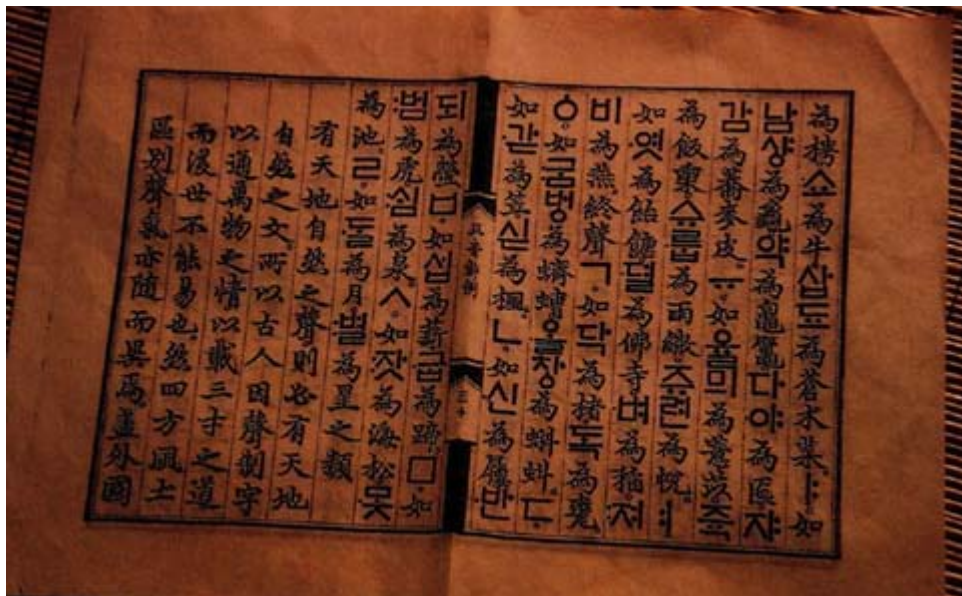 為梬쇼為牛삽됴為蒼朮菜ㅑ如
남샹為龜약為𪓟鼊다야為匜쟈
감為蕎麥皮ㅠ如율믜為薏苡쥭
為飯𣖄슈룹為雨繖쥬련為帨ㅕ
如엿為飴餹뎔為佛寺벼為稻져
비為燕終聲ㄱ如닥為楮독為甕
ㆁ如굼벙為蠐螬올창為蝌蚪ㄷ
如갇為笠싣為楓ㄴ如신為屨반
正音解例
되為螢ㅂ如섭為薪굽為蹄ㅁ如
범為虎ᄉᆡᆷ為泉ㅅ如잣為海松못
為池ㄹ如ᄃᆞᆯ為月별為星之類
有天地自然之聲則必有天地
自然之文所以古人因聲制字
以通萬物之情以載三才之道
而後世不能易也然四方風土
區別聲氣亦隨而異焉盖外國